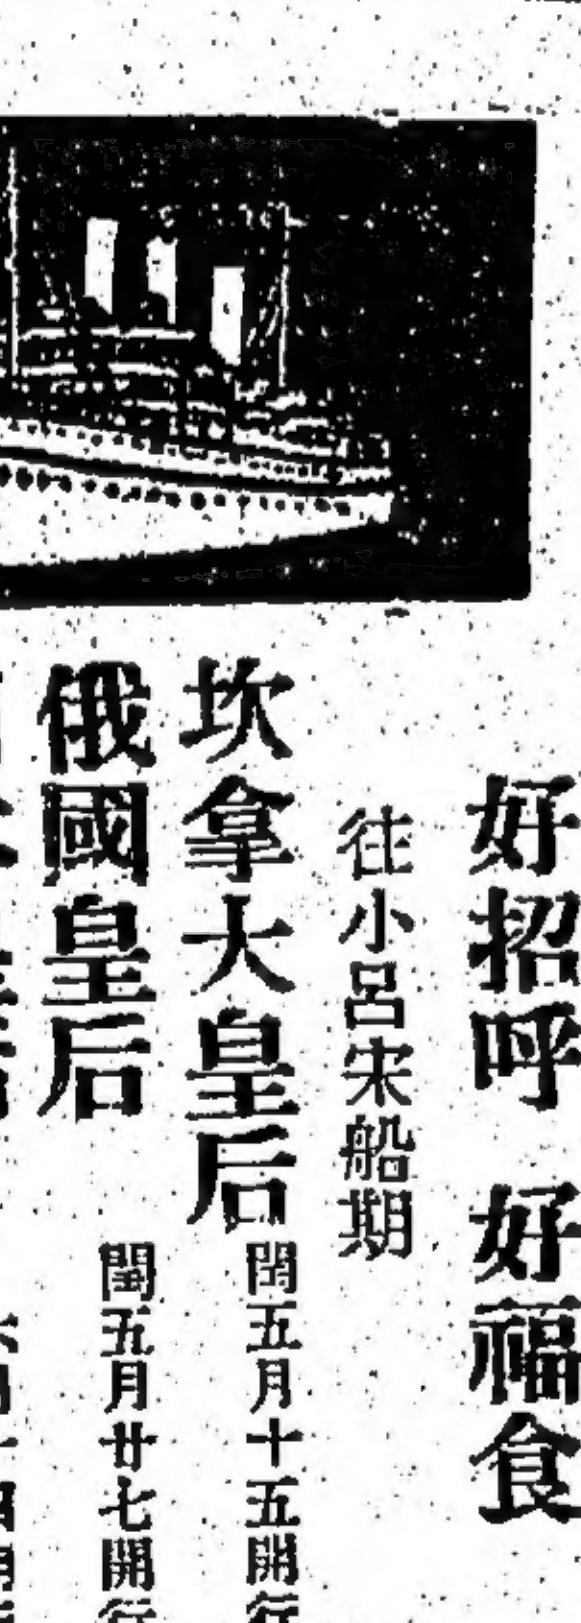 好招呼 好福食
往小呂宋船期
坎拿大皇后
閏五月十五開行
俄國皇后
閏五月廿七開行